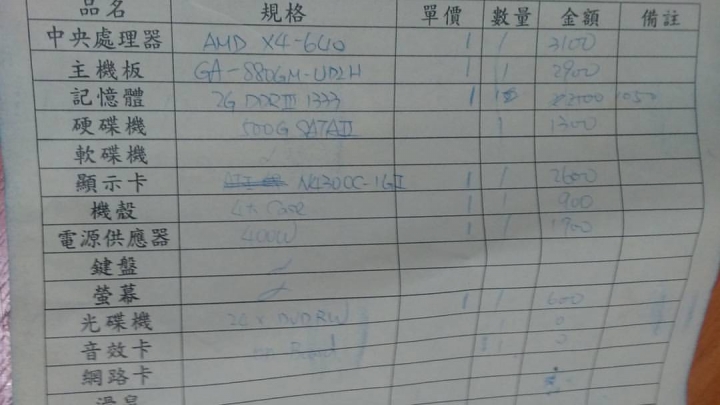 品名 規格 單價 數量 金額 備註
中央處理器 AMD X4-640 1 1 3100
主機板 GA-880GM-UD2H 1 1 2900
記憶體 2G DDRIII 1333 1 1050
硬碟機 500G SATAII 1 1300
軟碟機
顯示卡 N430GC-1GI 1 1 2600
機殼 Case 1 1 900
電源供應器 400W 1 1 1900
鍵盤
螢幕 1 1 600
光碟機 24x DVDRW 1 0
音效卡 on Board 1 0
網路卡
滑鼠